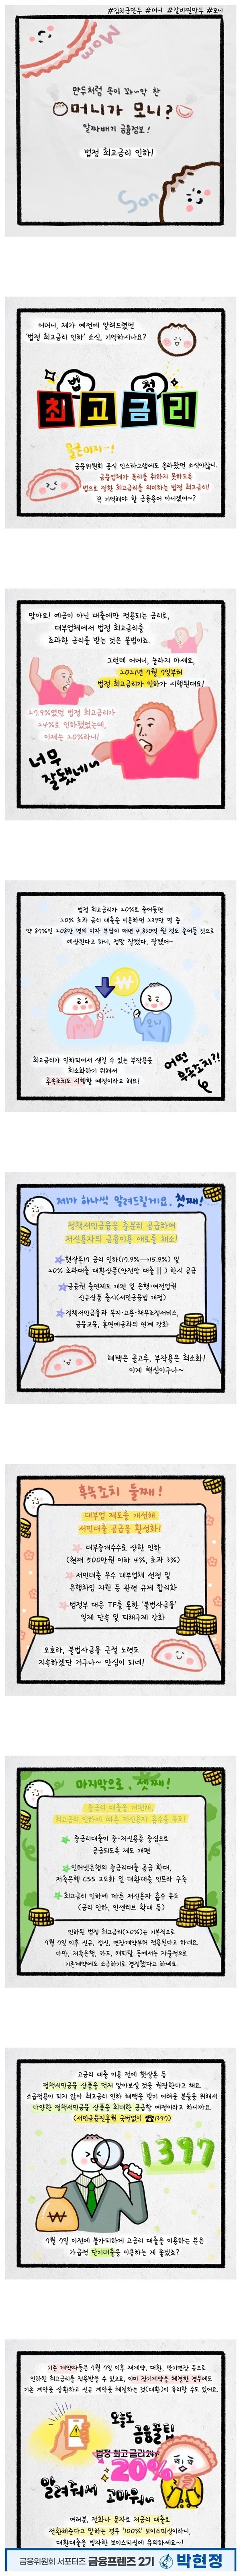 #김치군만두 #머니 #갈비찐만두 #모니
Mom
만두처럼 속이 꽈~악 찬
머니가 모니?
알짜배기 금융정보!
법정 최고금리 인하!
Son
머머니, 제가 예전에 알려드렸던
'법정 최고금리 인하' 소식, 기억하시나요?
법 정
최고금리
물론이지~!
금융위원회 공식 인스타그램에도 올라왔던 소식이잖니.
금융업체가 폭리를 취하지 못하도록
법으로 정한 최고금리를 의미하는 법정 최고금리!
꼭 기억해야 할 금융용어 아니겠어~?
맞아요! 예금이 아닌 대출에만 적용되는 금리로,
대부업체에서 법정 최고금리를
초과한 금리를 받는 것은 불법이죠.
그런데 머머니, 놀라지 마세요,
2021년 7월 7일부터
법정 최고금리가 인하가 시행된대요!
27.9%였던 법정 최고금리가
24%로 인하됐었는데,
이제는 20%라니!
너무
잘됐네~
법정 최고금리가 20%로 줄어들면
20% 초과 금리 대출을 이용하던 239만 명 중
약 87%인 208만 명의 이자 부담이 매년 4,830억 원 정도 줄어들 것으로
예상된다고 하니, 정말 잘됐다, 잘됐어~
모니
최고금리가 인하되어서 생길 수 있는 부작용을
최소화하기 위해서
후속조치도 시행할 예정이라고 해요!
어떤
후속조치?!
제가 하나씩 알려드릴게요, 첫째!
정책서민금융을 충분히 공급하여
저신용자의 금융이용 애로를 해소!
햇살론17 금리 인하(17.9%→15.9%) 및
20% 초과대출 대환상품(안전망 대출 II) 한시 공급
금융권 출연제도 개편 및 은행·여전업권
신규상품 출시(서민금융법 개정)
정책서민금융과 복지·고용·채무조정서비스,
금융교육, 휴면예금과의 연계 강화
혜택은 골고루, 부작용은 최소화!
이게 핵심이구나~
후속조치 둘째!
대부업 제도를 개선해
서민대출 공급을 활성화!
대부중개수수료 상한 인하
(현재 500만원 이하 4%, 초과 3%)
서민대출 우수 대부업체 선정 및
은행차입 지원 등 관련 규제 합리화
범정부 대응 TF를 통한 '불법사금융'
일제 단속 및 피해구제 강화
오호라, 불법사금융 근절 노력도
지속하겠단 거구나~ 안심이 되네!
마지막으로, 셋째!
중금리 대출을 개편해,
최고금리 인하에 따른 저신용자 흡수를 유도!
중금리대출이 중·저신용층 중심으로
공급되도록 제도 개편
인터넷은행의 중금리대출 공급 확대,
저축은행 CSS 고도화 및 대환대출 인프라 구축
최고금리 인하에 따른 저신용자 흡수 유도
(금리 인하, 인센티브 확대 등)
인하된 법정 최고금리(20%)는 기본적으로
7월 7일 이후 신규, 갱신, 연장계약부터 적용된다고 하네요.
다만, 저축은행, 카드, 캐피탈 등에서는 자율적으로
기존계약에도 소급하기로 결정했다고 하네요.
고금리 대출 이용 전에 햇살론 등
정책서민금융 상품을 먼저 알아보실 것을 권장한다고 해요.
소급적용이 되지 않아 최고금리 인하 혜택을 받기 어려운 분들을 위해서
다양한 정책서민금융 상품을 최대한 공급할 예정이라고 하니까요.
(서민금융진흥원 국번없이 ☎1397)
1397
₩
7월 7일 이전에 불가피하게 고금리 대출을 이용하는 분은
가급적 단기대출을 이용하는 게 좋겠죠?
기존 계약자들은 7월 7일 이후 재계약, 대환, 만기연장 등으로
인하된 최고금리를 적용받을 수 있으므로, 이미 장기계약을 체결한 경우에도
기존 계약을 상환하고 신규 계약을 체결하는 것(대환)이 유리할 수도 있어요.
오늘도
금융꿀팁
법정 최고금리 24%
20%
알려줘서 고마워~
여러분, 전화나 문자로 저금리 대출로
전환해준다고 말하는 경우 '100%' 보이스피싱이라니,
대환대출을 빙자한 보이스피싱에 유의하세요~!
금융위원회 서포터즈 금융프렌즈 2기 박현정